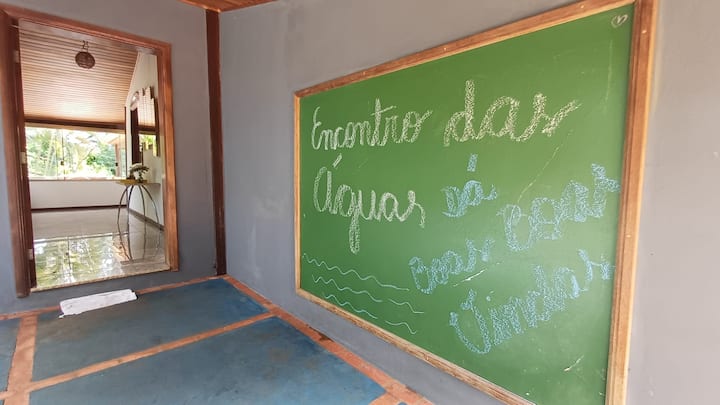 Encontro das
Águas
Boas
Vindas